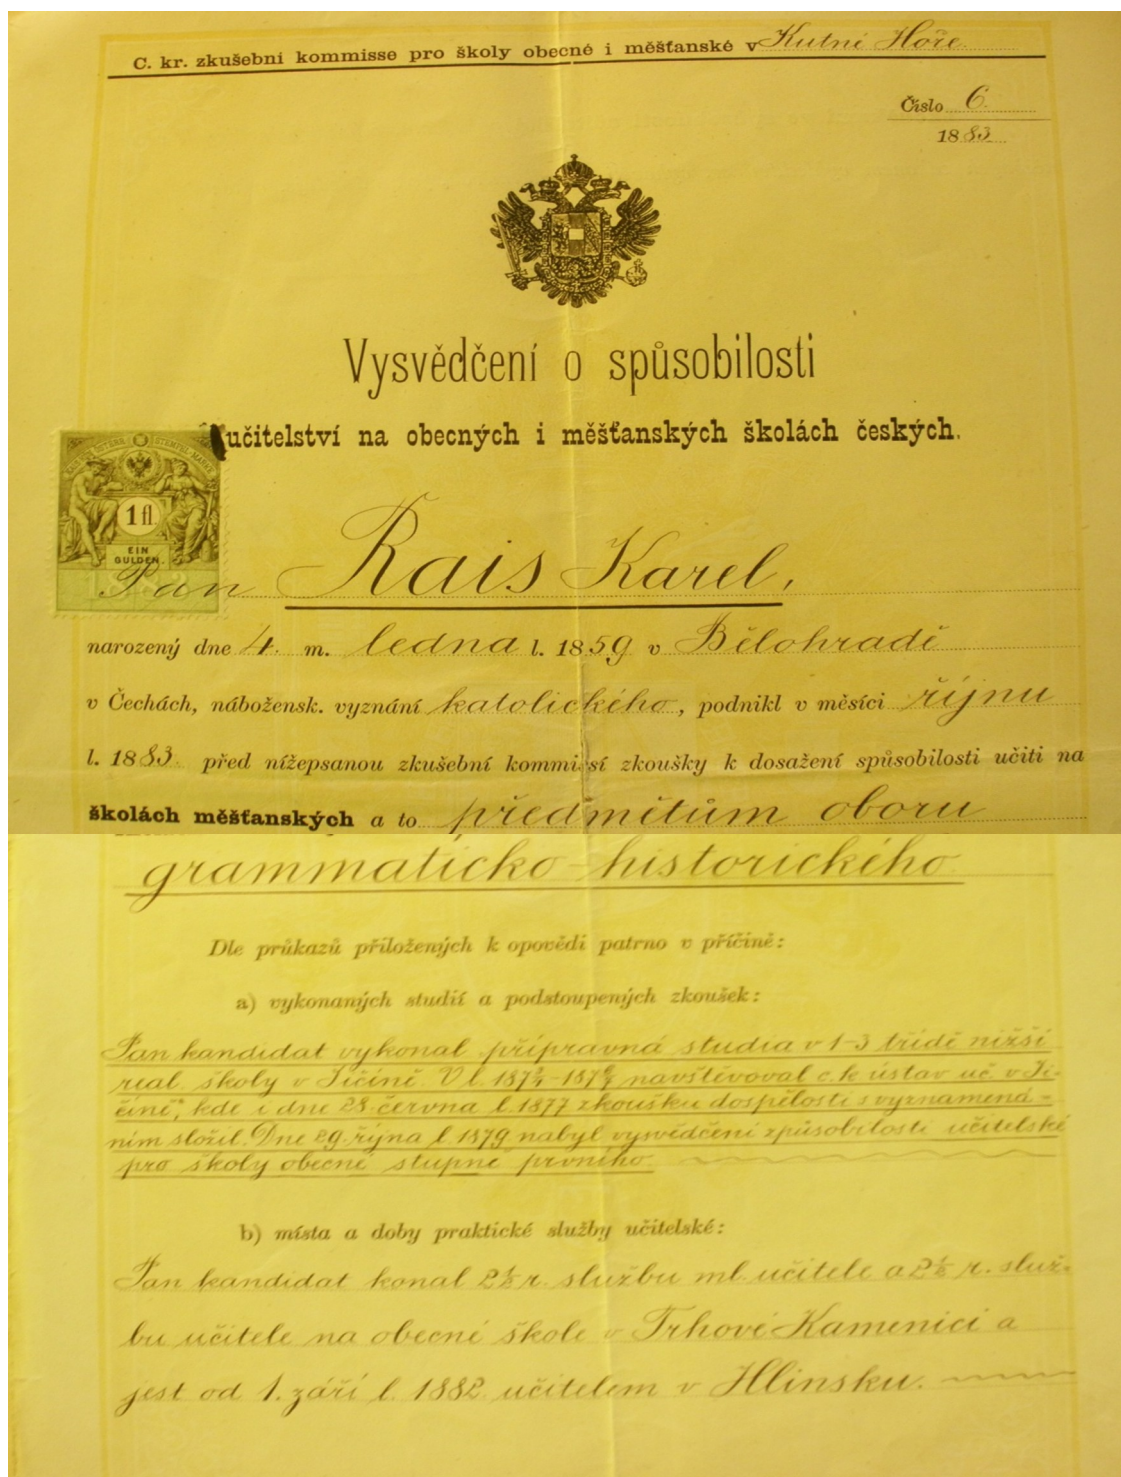 C. kr. zkušební kommisse pro školy obecné i měšťanské v Kutné Hoře
Číslo 6.
1883
Vysvědčení o spůsobilosti
učitelství na obecných i měšťanských školách českých.
KAIS. KÖN. ÖSTERR. STEMPEL-MARKE
1 fl.
EIN
GULDEN.
Pan Rais Karel,
narozený dne 4. m. ledna l. 1859 v Bělohradě
v Čechách, nábožensk. vyznání katolického, podnikl v měsíci říjnu
l. 1883. před nížepsanou zkušební kommissí zkoušky k dosažení spůsobilosti učiti na
školách měšťanských a to předmětům oboru
grammaticko-historického
Dle průkazů přiložených k opovědi patrno v příčině:
a) vykonaných studií a podstoupených zkoušek:
Pan kandidat vykonal přípravná studia v 1-3 třídě nižší
real. školy v Jičíně. V l. navštěvoval c. k. ústav uč. v Ji-
číně, kde i dne 28. června l. 1877 zkoušku dospělosti s vyznamená-
ním složil. Dne 29. října l. 1879 nabyl vysvědčení způsobilosti učitelské
pro školy obecné stupně prvního.
b) místa a doby praktické služby učitelské:
Pan kandidat konal 2½ r. službu ml. učitele a 2½ r. služ-
bu učitele na obecné škole v Trhové Kamenici a
jest od 1. září l. 1882 učitelem v Hlinsku.